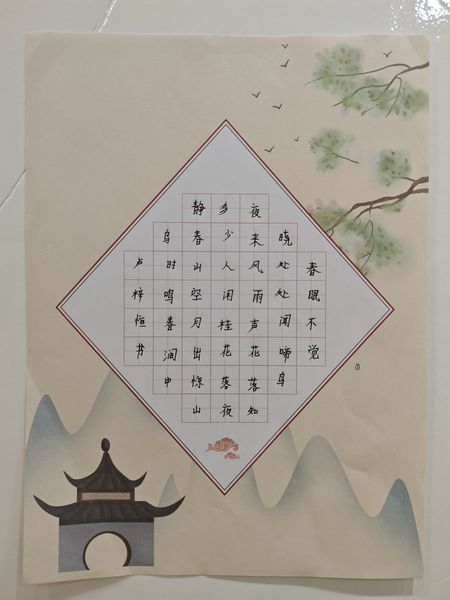 春眠不觉
晓处处闻啼鸟
夜来风雨声花落知
多少人闲桂花落夜
静春山空月出惊山
鸟时鸣春涧中
卢梓恒书
①